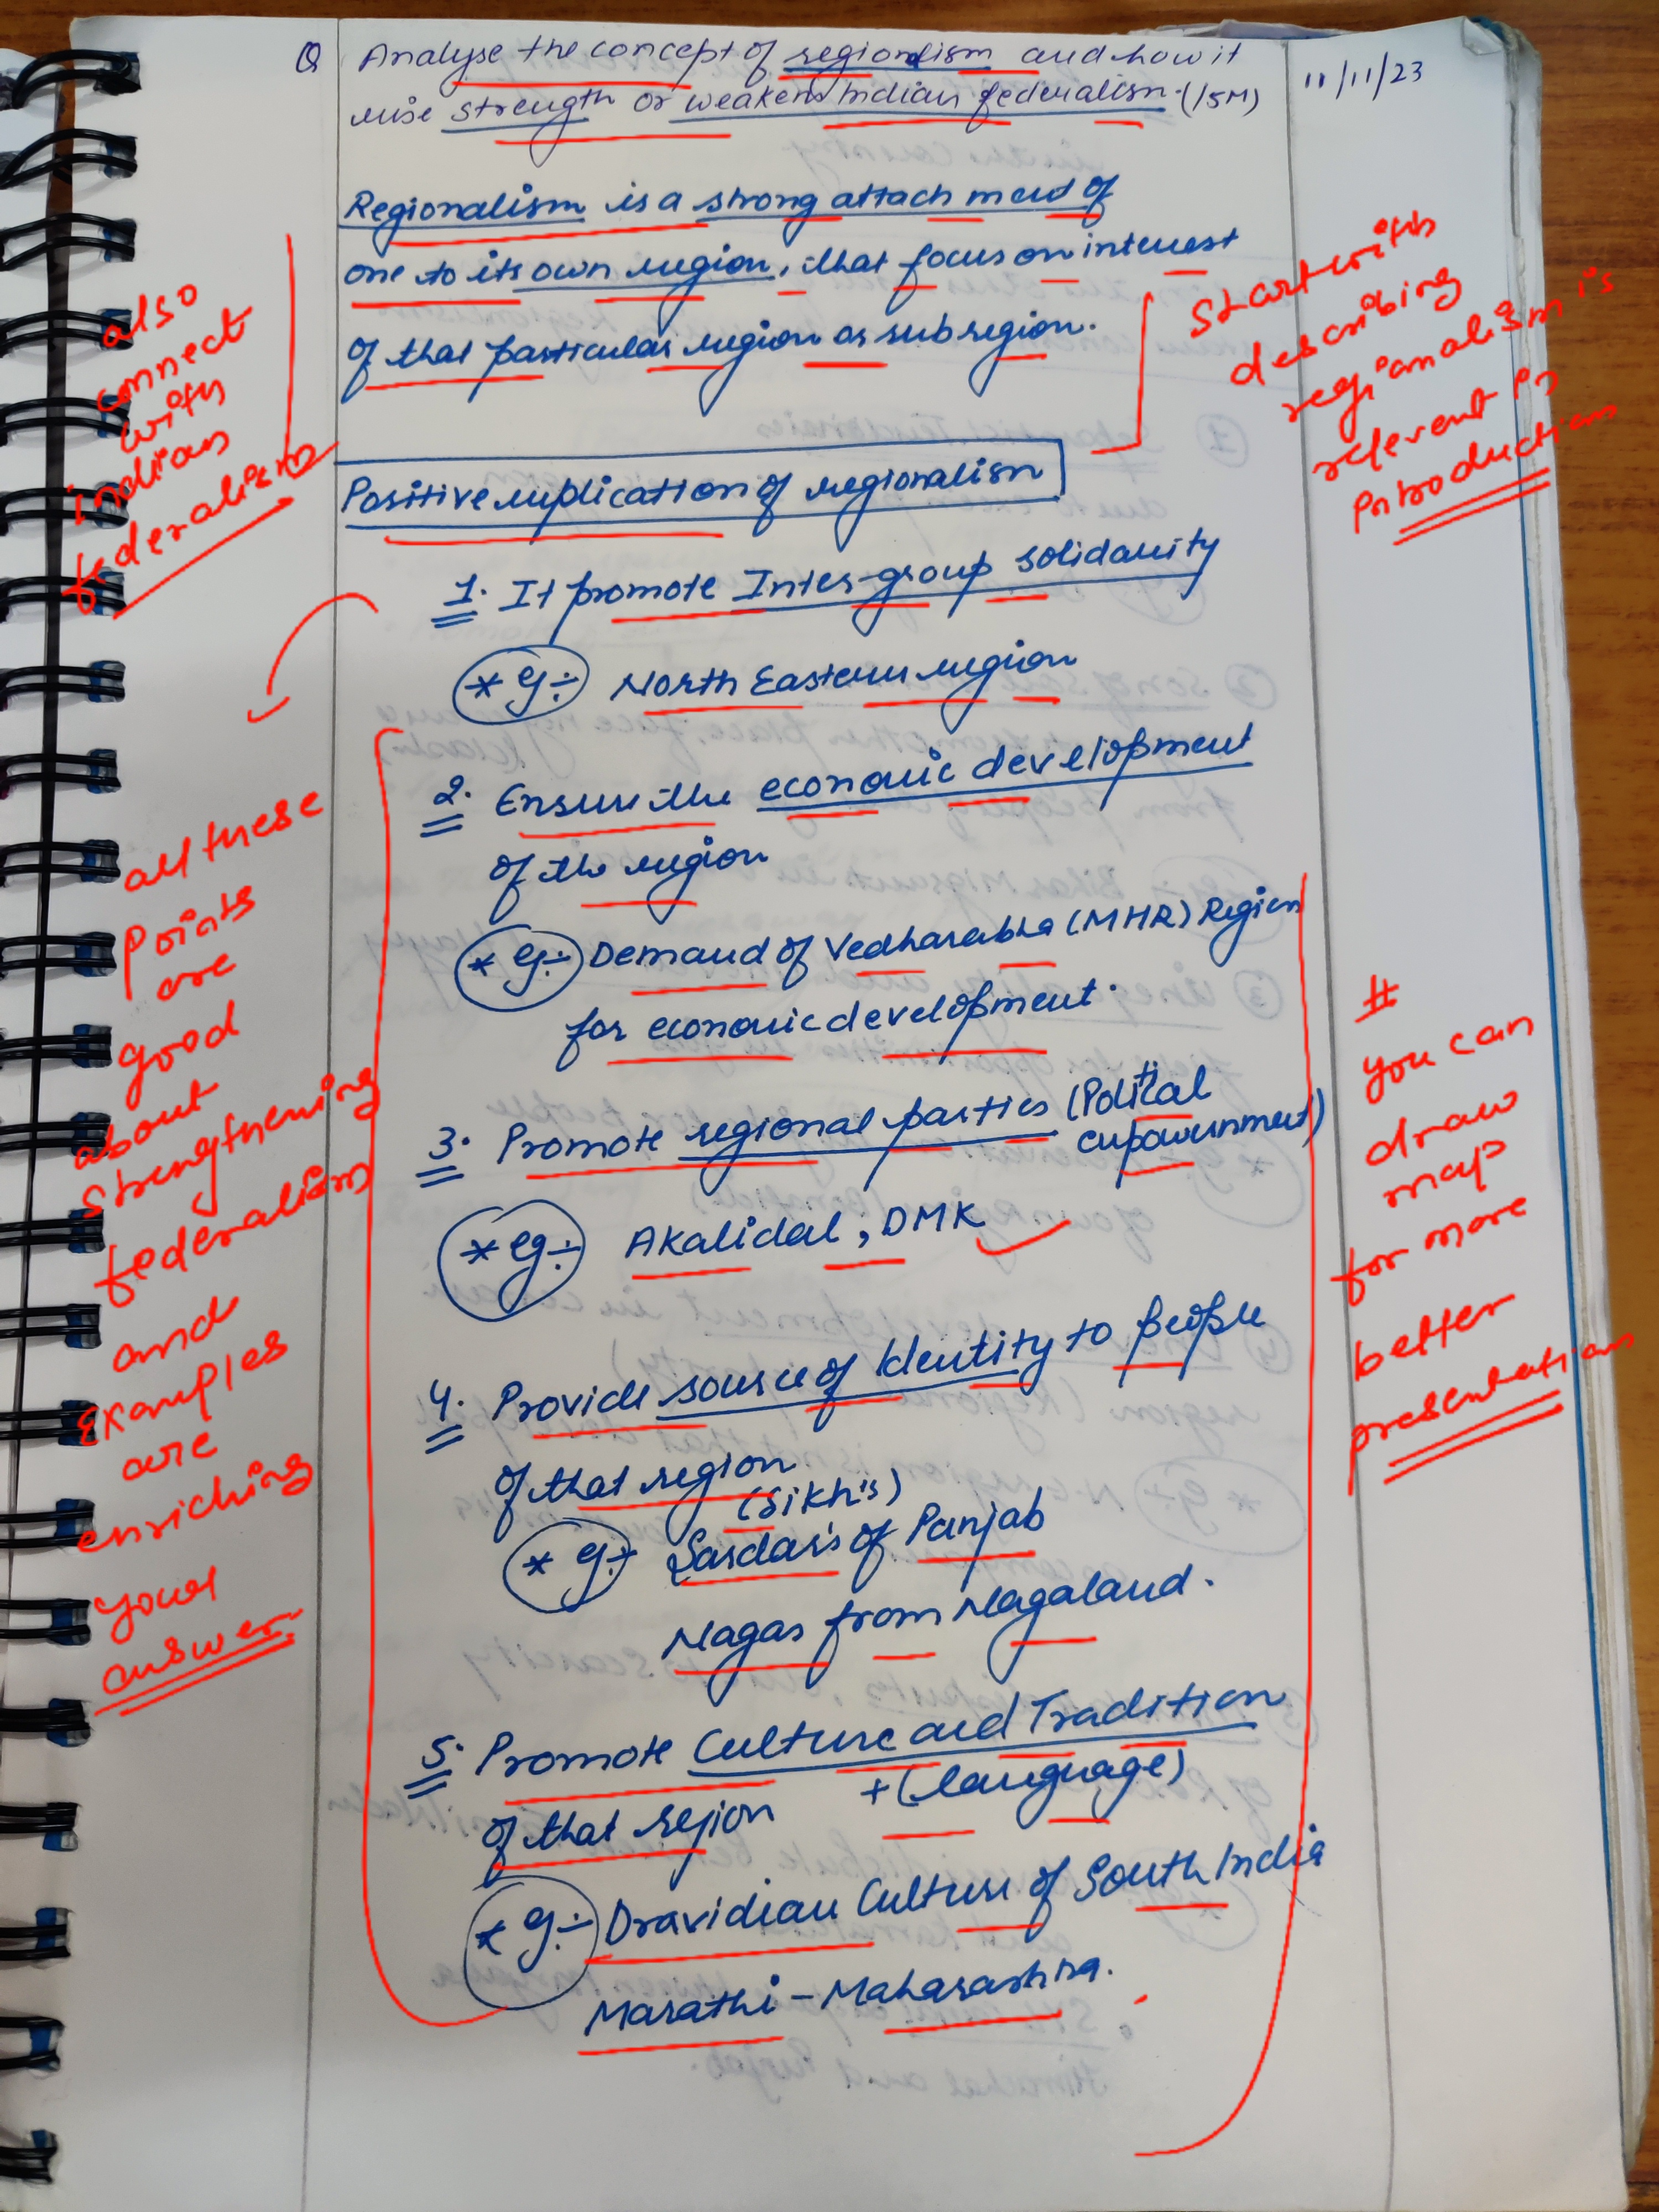 Q Analyse the concept of regionalism and how it
rise strength or weakens Indian federalism. (15M)
11/11/23
Regionalism is a strong attachment of
one to its own region, that focus on interest
of that particular region or subregion.
start with
describing
regionalism is
relevent in
Introduction
also
connect
with
indian
federalism
Positive implication of regionalism
1. It promote Inter-group solidarity
* eg:- North Eastern region
2. Ensure the economic development
of the region
* eg:- Demand of Vedharabha (MHR) Region
for economic development.
3. Promote regional parties (Political
empowernment)
* eg:- Akalidal, DMK
4. Provide source of Identity to people
of that region
(Sikh's)
* eg:- Sardar's of Panjab
Nagas from Nagaland.
5. Promote Culture and Tradition
+ (language)
of that region
* eg:- Dravidian Culture of South India
Marathi - Maharashtra.
all these
points
are
good
about
strengthening
federalism
and
Examples
are
enriching
your
answer.
#
you can
draw
map
for more
better
presentation